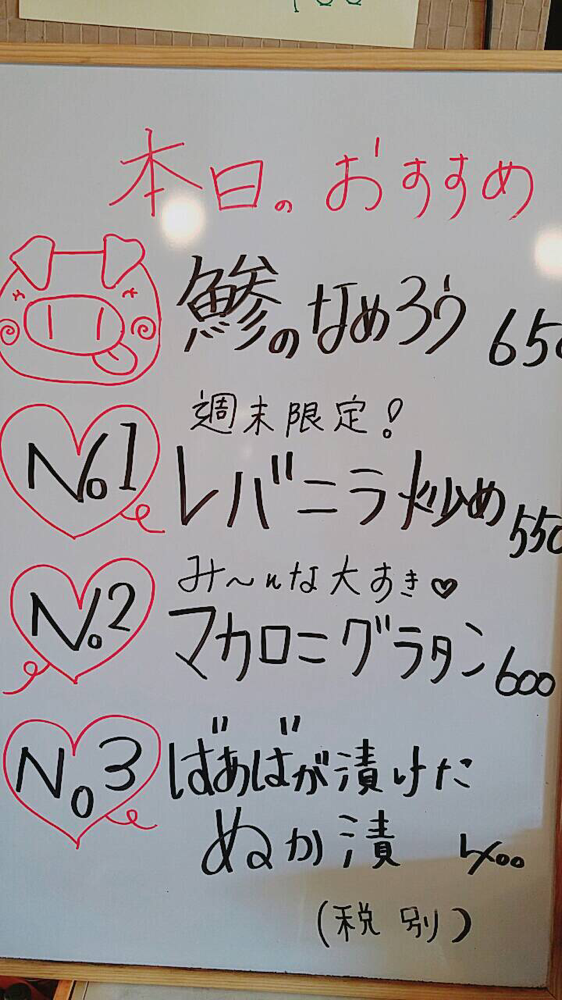 本日のおすすめ
鯵のなめろう 650
No.1
週末限定!
レバニラ炒め 550
No.2
み〜んな大すき♥
マカロニグラタン 600
No.3
ばあばが漬けた
ぬか漬 400
(税別)